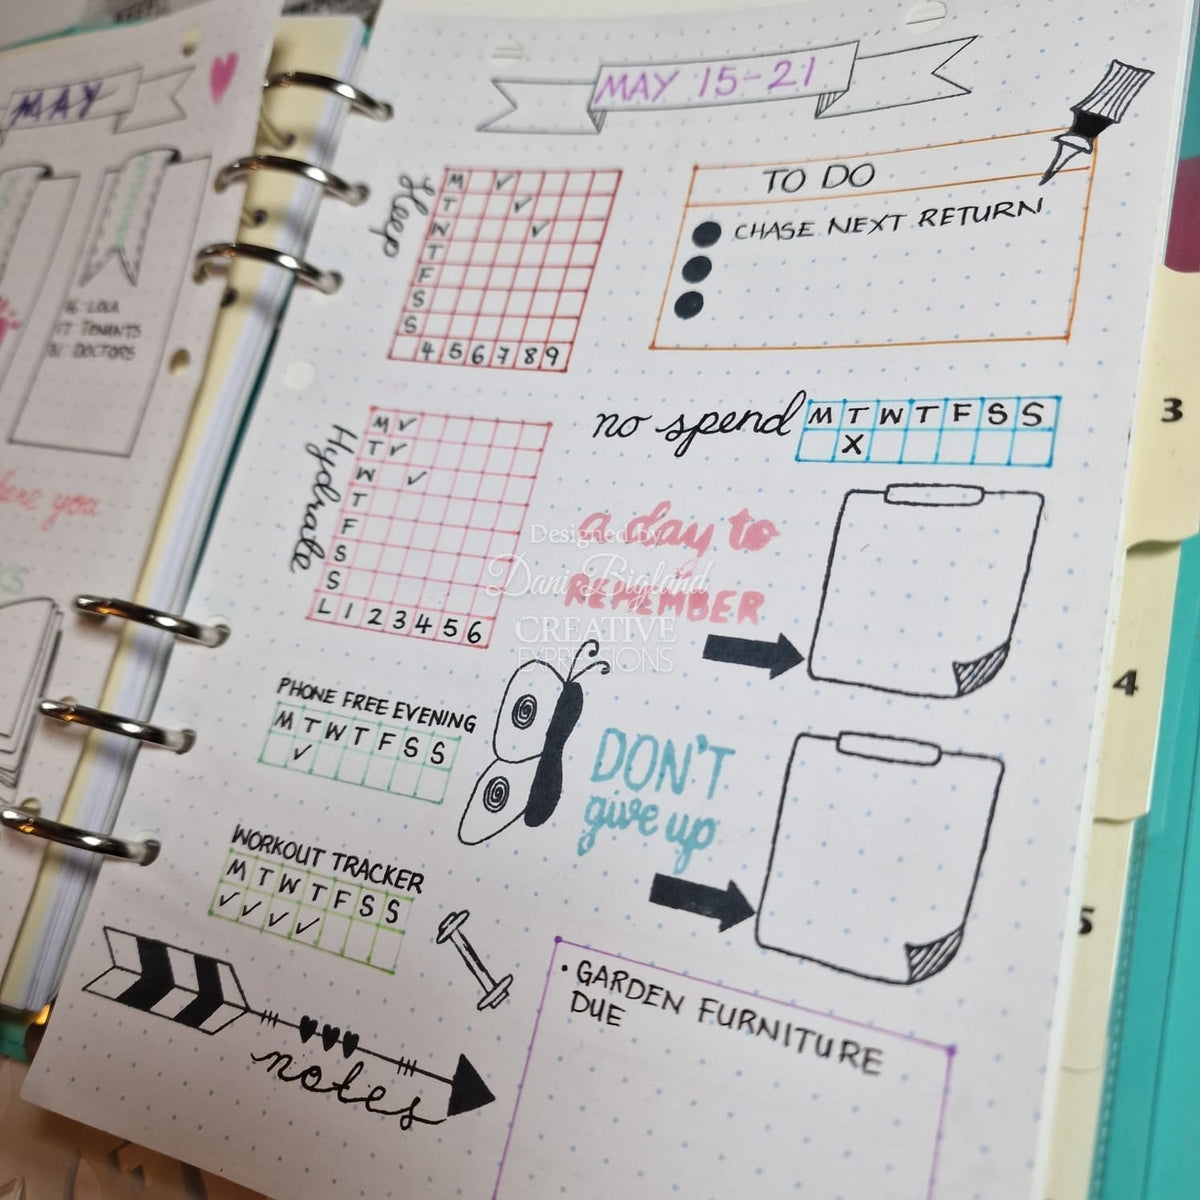 MAY
16: LOLA
17: TENANTS
31: DOCTORS
here you
MAY 15-21
Sleep
M ✓
T ✓
W ✓
T
F
S
S
4 5 6 7 8 9
TO DO
CHASE NEXT RETURN
no spend
M T W T F S S
X
Hydrate
M ✓
T ✓
W ✓
T
F
S
S
L 1 2 3 4 5 6
a day to
REMEMBER
Designed by
Dani Bigland
CREATIVE
EXPRESSIONS
PHONE FREE EVENING
M T W T F S S
✓
DON'T
give up
WORKOUT TRACKER
M T W T F S S
✓ ✓ ✓ ✓
notes
• GARDEN FURNITURE
DUE
3
4
5